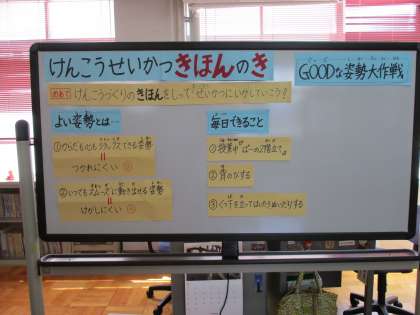 けんこうせいかつ きほんのき
GOODな姿勢大作戦
めあて けんこうづくりのきほんをしって せいかつにいかしていこう！
よい姿勢とは…
①からだも心もリラックスできる姿勢
つかれにくい
②いつでもスムーズに動き出せる姿勢
けがしにくい
毎日できること
①授業中
②背のびする
③くつ下を立ってはいたりぬいだりする